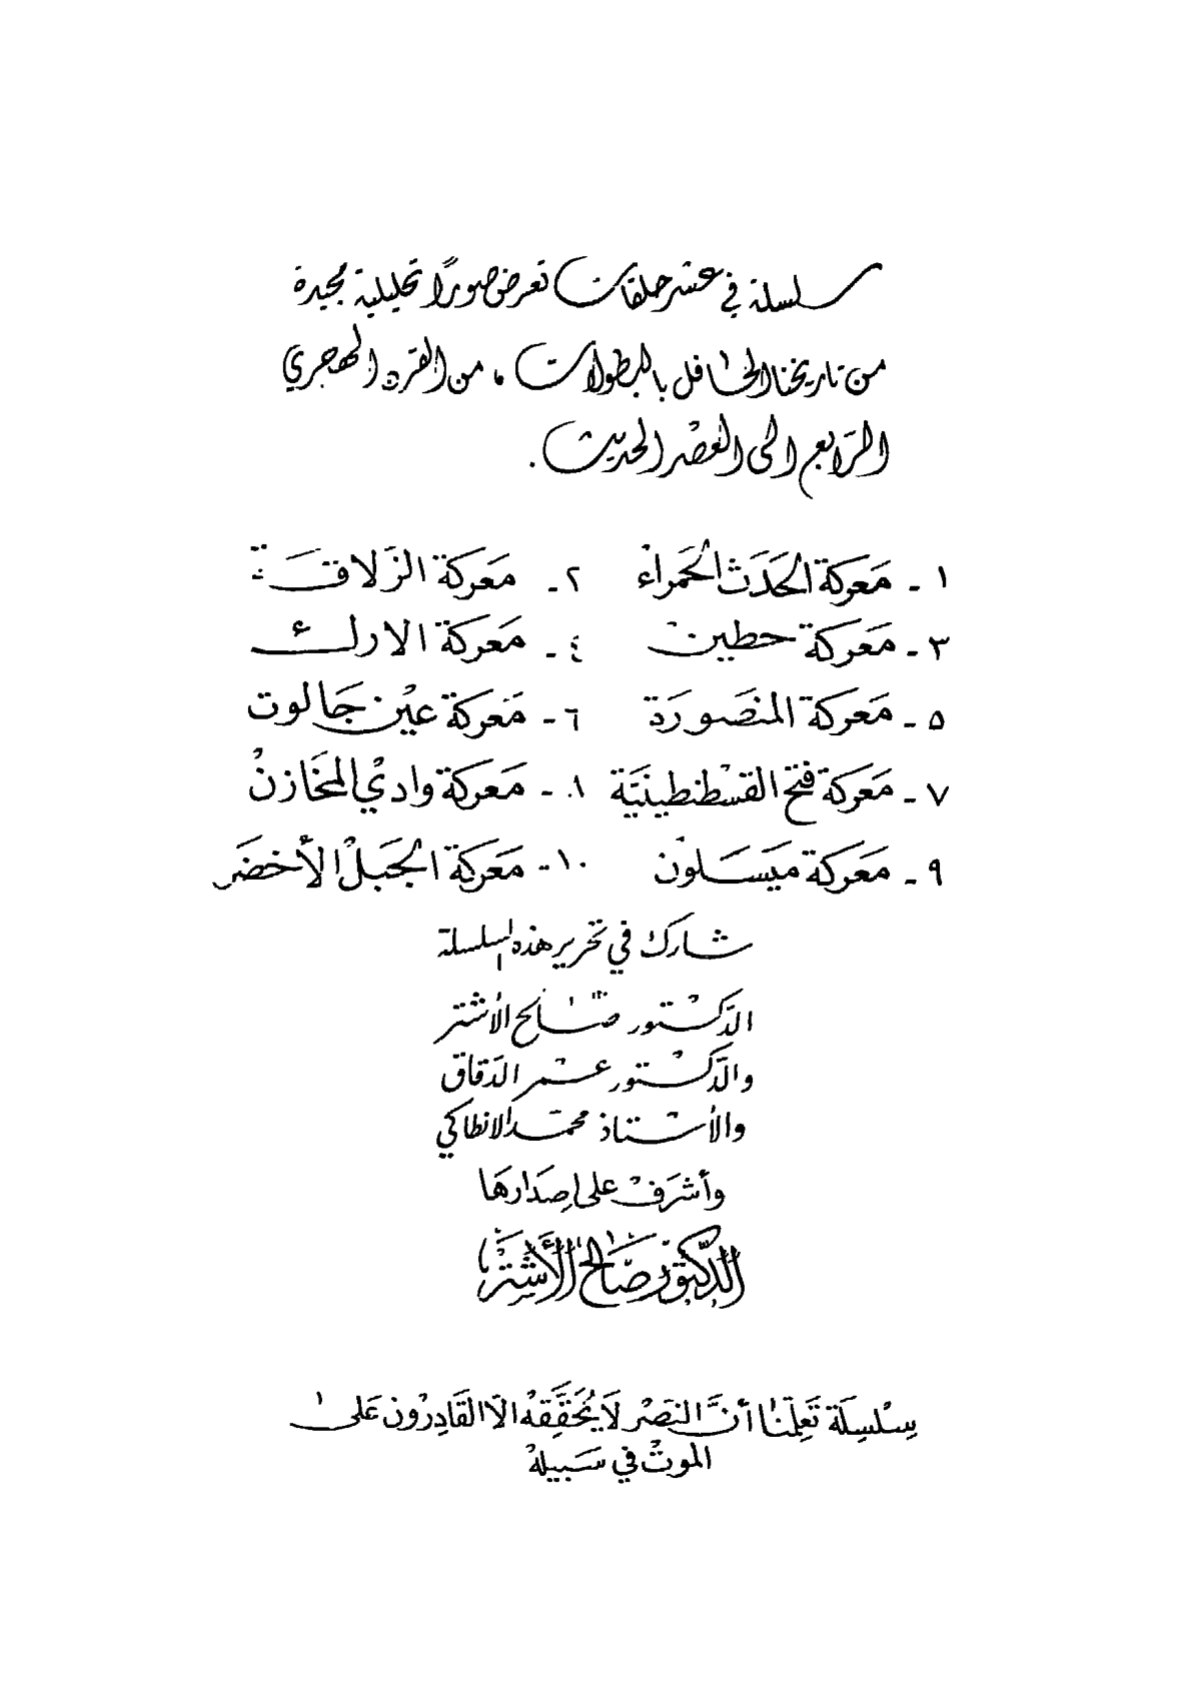 سلسلة في عشر حلقات تعرض صورًا تحليلية مجيدة
من تاريخنا الحافل بالبطولات، من القرن الهجري
الرابع الى العصر الحديث.
١ - معركة الحدث الحمراء ٢ - معركة الزلاقة
٣ - معركة حطين ٤ - معركة الارك
٥ - معركة المنصورة ٦ - معركة عين جالوت
٧ - معركة فتح القسطنطينية ٨ - معركة وادي المخازن
٩ - معركة ميسلون ١٠ - معركة الجبل الأخضر
شارك في تحرير هذه السلسلة
الدكتور صالح الأشتر
والدكتور عمر الدقاق
والأستاذ محمد الانطاكي
وأشرف على إصدارها
الدكتور صالح الأشتر
سلسلة تعلمنا أن النصر لا يحققه الا القادرون على
الموت في سبيله